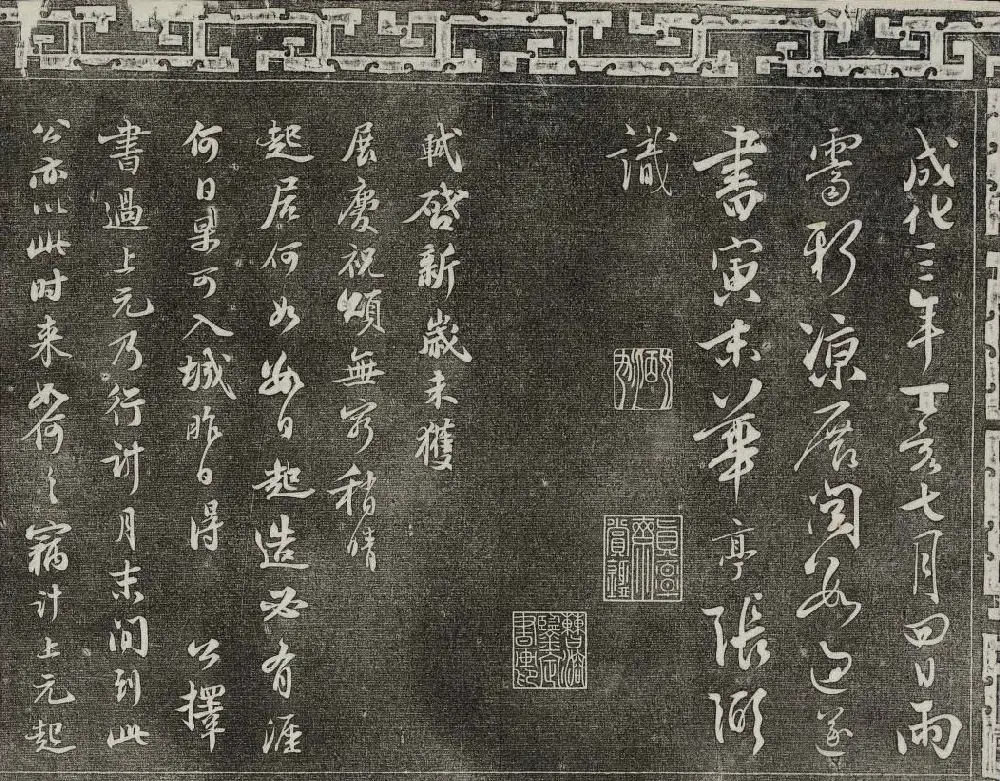 成化三年丁亥七月四日雨
霽新凉展閱數過遂
書寅末華亭張弼
識
軾啓新歲未獲
展慶祝頌無窮稍晴
起居何如數日起造必有涯
何日果可入城昨日得公擇
書過上元乃行計月末間到此
公亦以此时來如何々竊計上元起